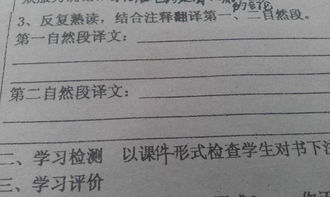 3、反复熟读，结合注释翻译第一、二自然段。
第一自然段译文：
第二自然段译文：
二、学习检测 以课件形式检查学生对书下注
三、学习评价